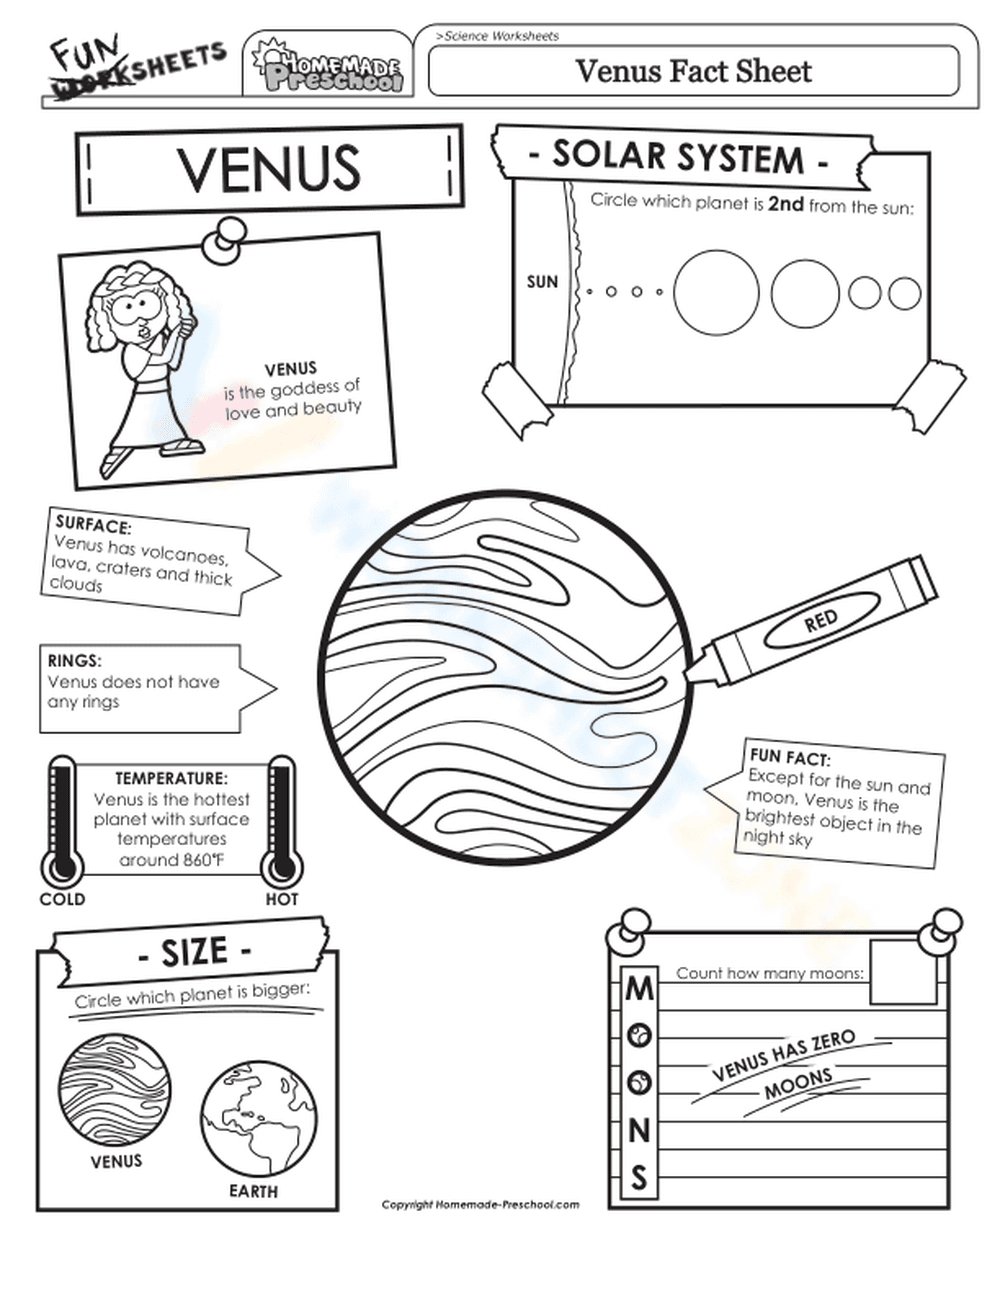 FUN
WORKSHEETS
HOMEMADE
Preschool
>Science Worksheets
Venus Fact Sheet
VENUS
- SOLAR SYSTEM -
Circle which planet is 2nd from the sun:
SUN
VENUS
is the goddess of
love and beauty
SURFACE:
Venus has volcanoes,
lava, craters and thick
clouds
RED
RINGS:
Venus does not have
any rings
TEMPERATURE:
Venus is the hottest
planet with surface
temperatures
around 860°F
COLD
HOT
FUN FACT:
Except for the sun and
moon, Venus is the
brightest object in the
night sky
- SIZE -
Circle which planet is bigger:
VENUS
EARTH
MOONS
Count how many moons:
VENUS HAS ZERO
MOONS
Copyright Homemade-Preschool.com